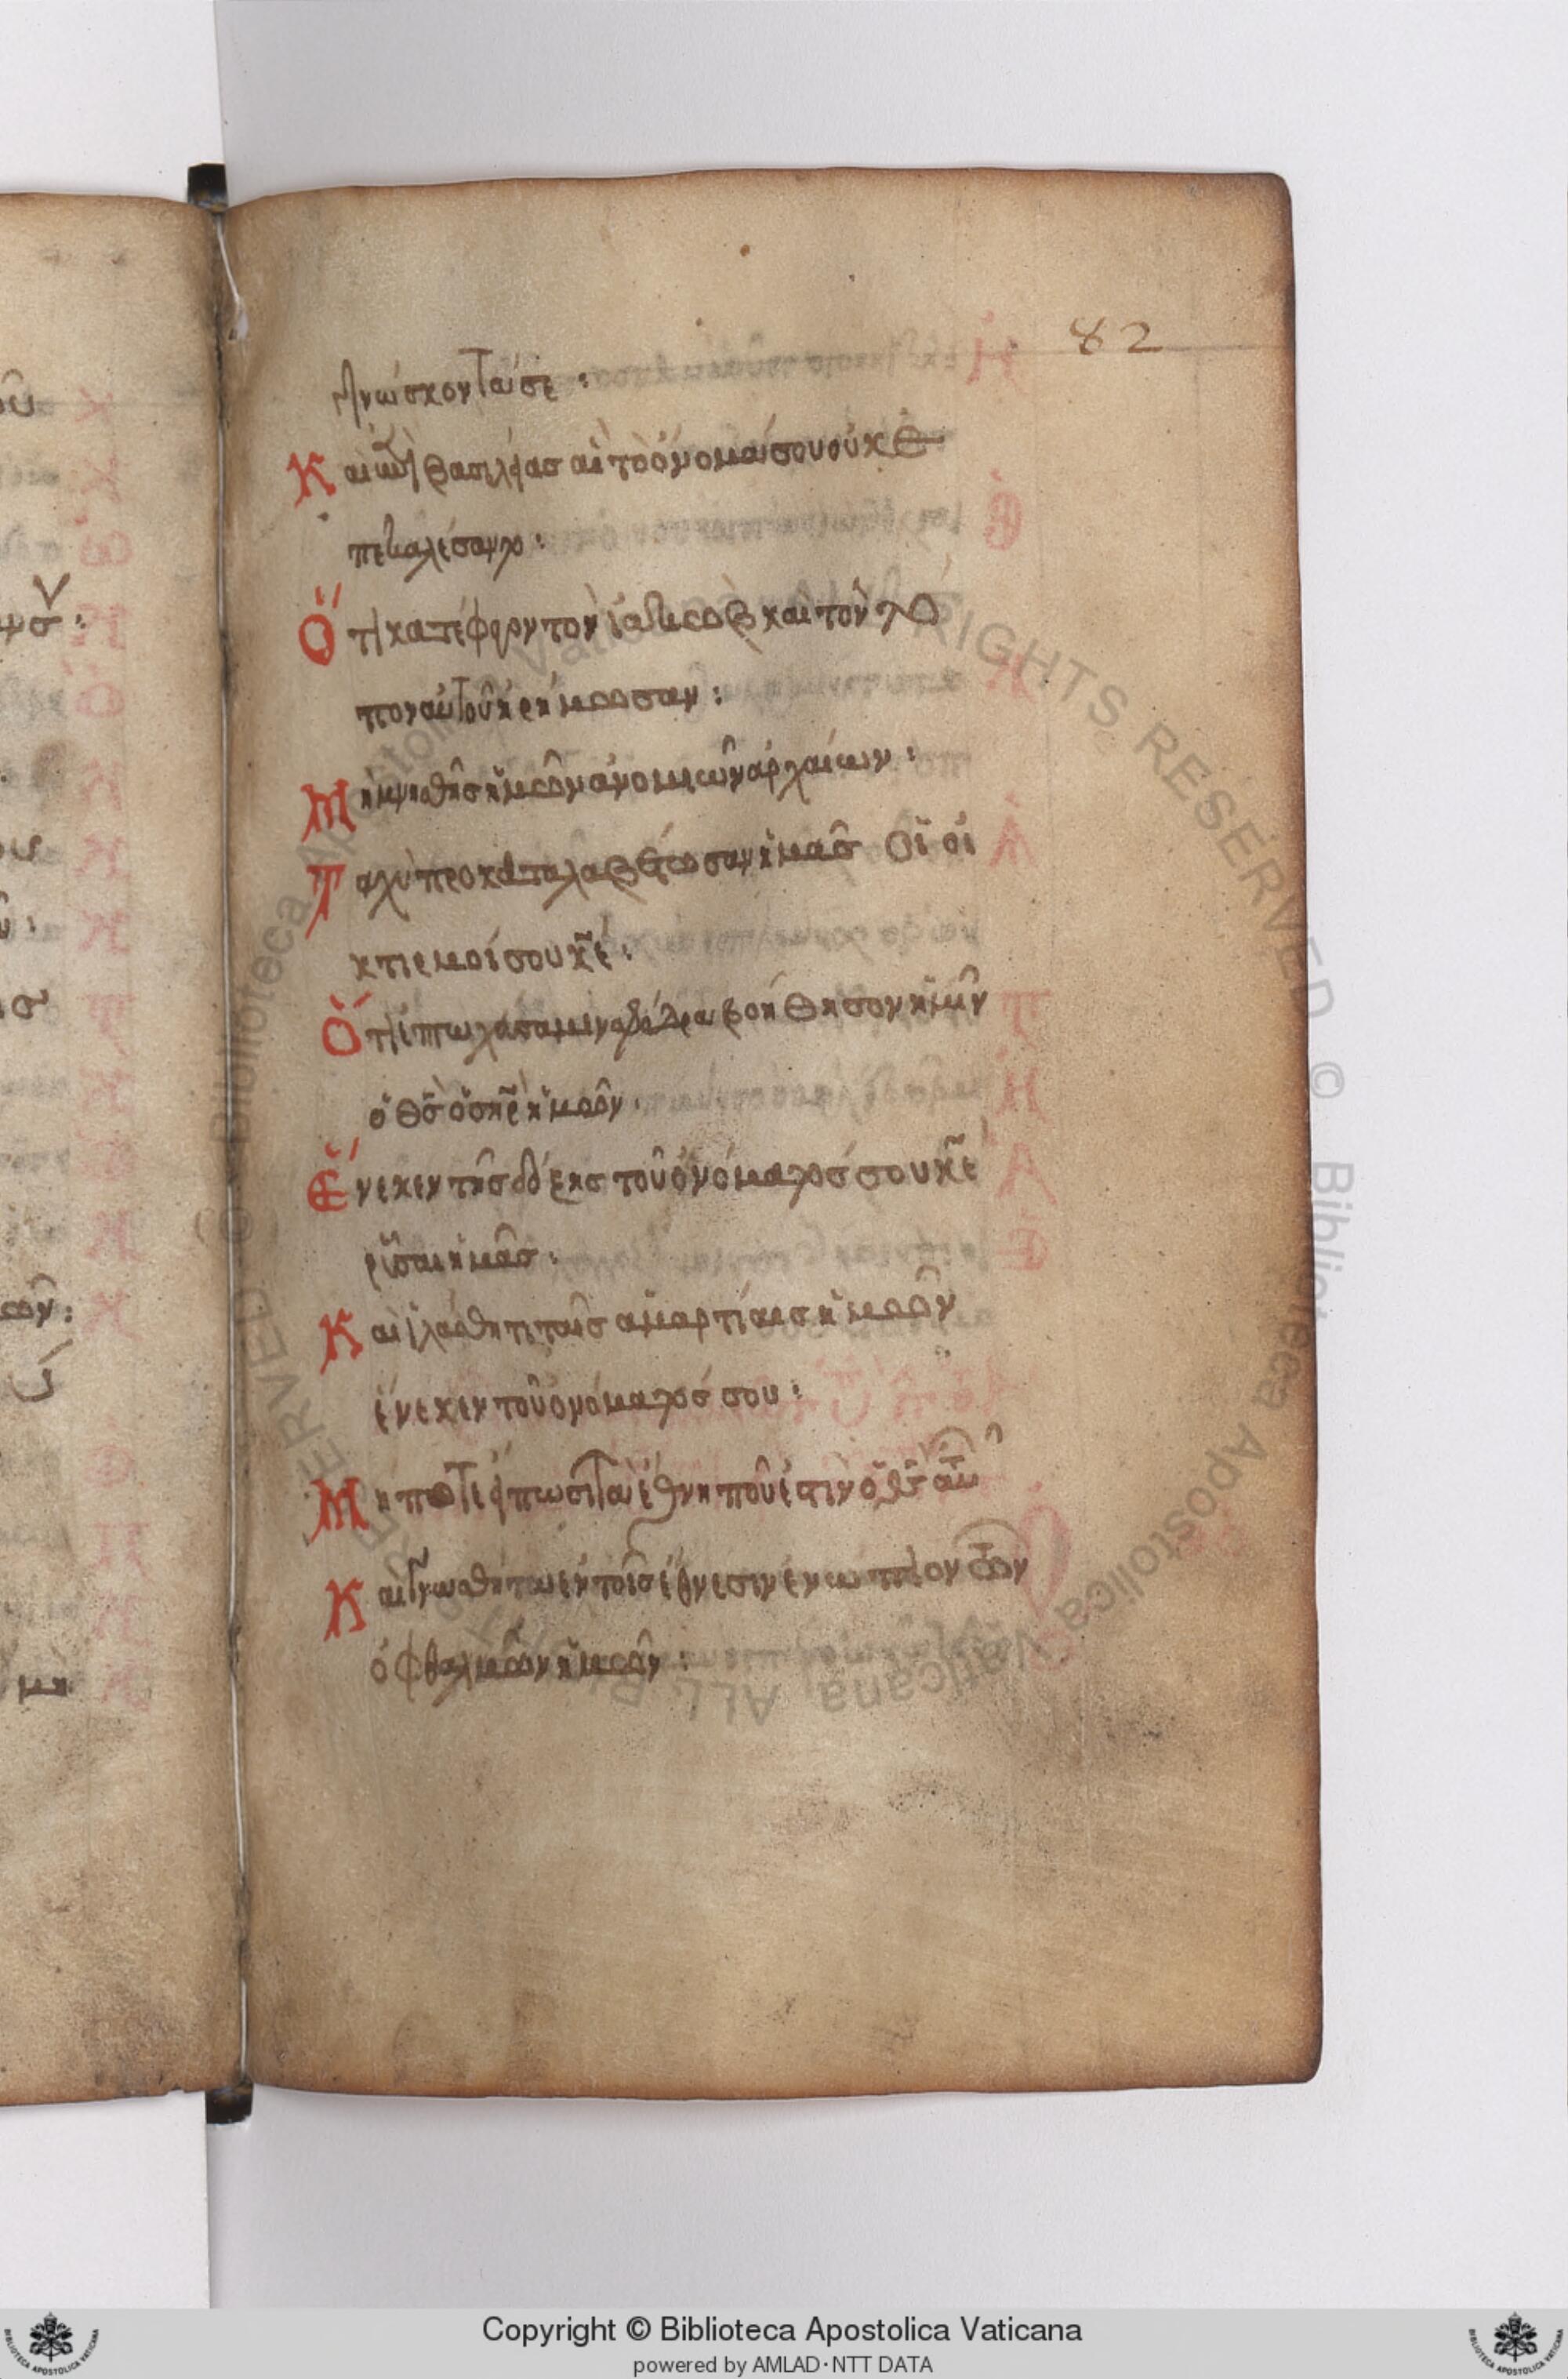 82
γινώσκοντά σε :
Καὶ ἐπὶ βασιλείας αἳ τὸ ὄνομά σου οὐκ ἐ
πεκαλέσαντο :
Ὅτι κατέφαγον τὸν ἰακὼβ καὶ τὸν τό
πον αὐτοῦ ἠρήμωσαν :
Μὴ μνησθῇς ἡμῶν ἀνομιῶν ἀρχαίων :
Ταχὺ προκαταλαβέτωσαν ἡμᾶς οἱ οἰ
κτιρμοί σου κε :
Ὅτι ἐπτωχεύσαμεν σφόδρα βοήθησον ἡμῖν
ὁ θς ὁ σηρ ἡμῶν :
Ἕνεκεν τῆς δόξης τοῦ ὀνόματός σου κε
ρῦσαι ἡμᾶς :
Καὶ ἱλάσθητι ταῖς ἁμαρτίαις ἡμῶν
ἕνεκεν τοῦ ὀνόματός σου :
Μή ποτε εἴπωσι τὰ ἔθνη ποῦ ἐστιν ὁ θς αὐτῶν
Καὶ γνωσθήτω ἐν τοῖς ἔθνεσιν ἐνώπιον τῶν
ὀφθαλμῶν ἡμῶν :
Copyright © Biblioteca Apostolica Vaticana
powered by AMLAD·NTT DATA